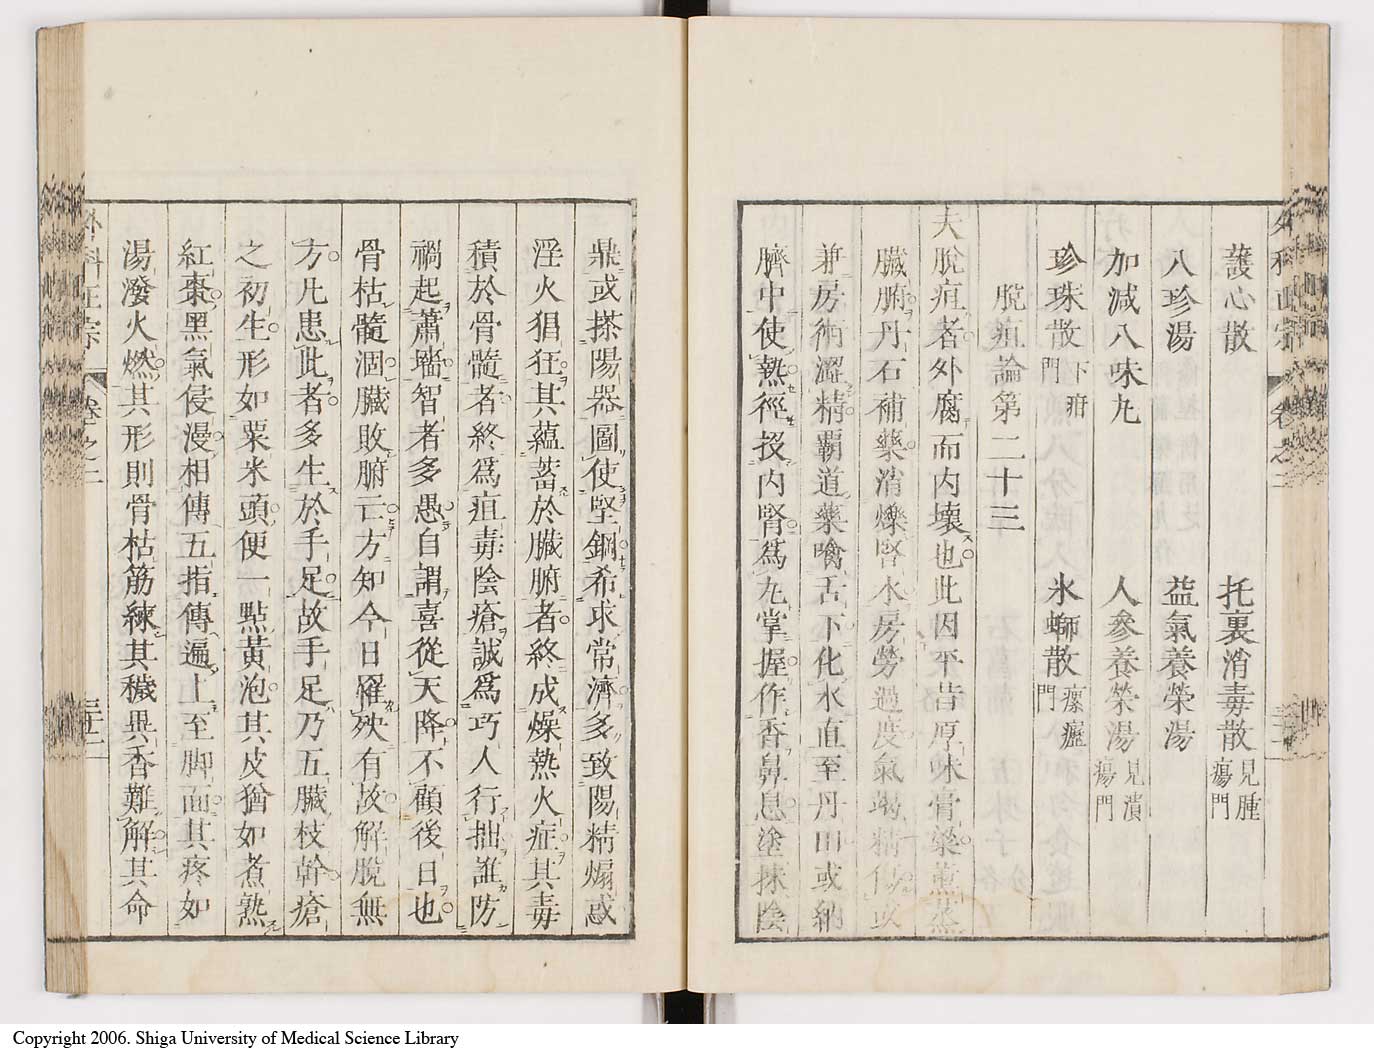 護心散　托裏消毒散見腫瘍門
八珍湯　益氣養榮湯
加減八味丸　人參養榮湯見潰瘍門
珍珠散下疳門　氷螄散瘰癧門
脫疽論第二十三
夫脫疽者外腐而内壞也此因平昔厚味膏粱薰蒸
臟腑丹石補藥消爍腎水房勞過度氣竭精傷或
兼房術澀精覇道藥噙舌下化水直至丹田或納
臍中使熱徑投内腎爲丸掌握作香鼻息塗抹陰
鼎或搽陽器圖使堅鋼希求常濟多致陽精煽惑
淫火猖狂其蘊蓄於臟腑者終成燥熱火症其毒
積於骨髓者終爲疽毒陰瘡誠爲巧人行拙誰防
禍起蕭墻智者多愚自謂喜從天降不顧後日也
骨枯髓涸臟敗腑亡方知今日罹殃有故解脫無
方凡患此者多生於手足故手足乃五臟枝幹瘡
之初生形如粟米頭便一點黃泡其皮猶如煮熟
紅棗黑氣侵漫相傳五指傳遍上至脚面其疼如
湯潑火燃其形則骨枯筋練其穢異香難解其命
外科正宗　卷之二
Copyright 2006. Shiga University of Medical Science Library